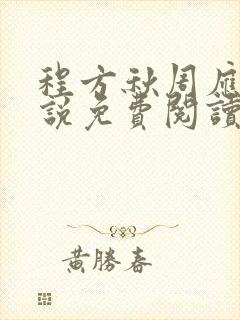 程方秋周應
說免費閱讀
黃勝春